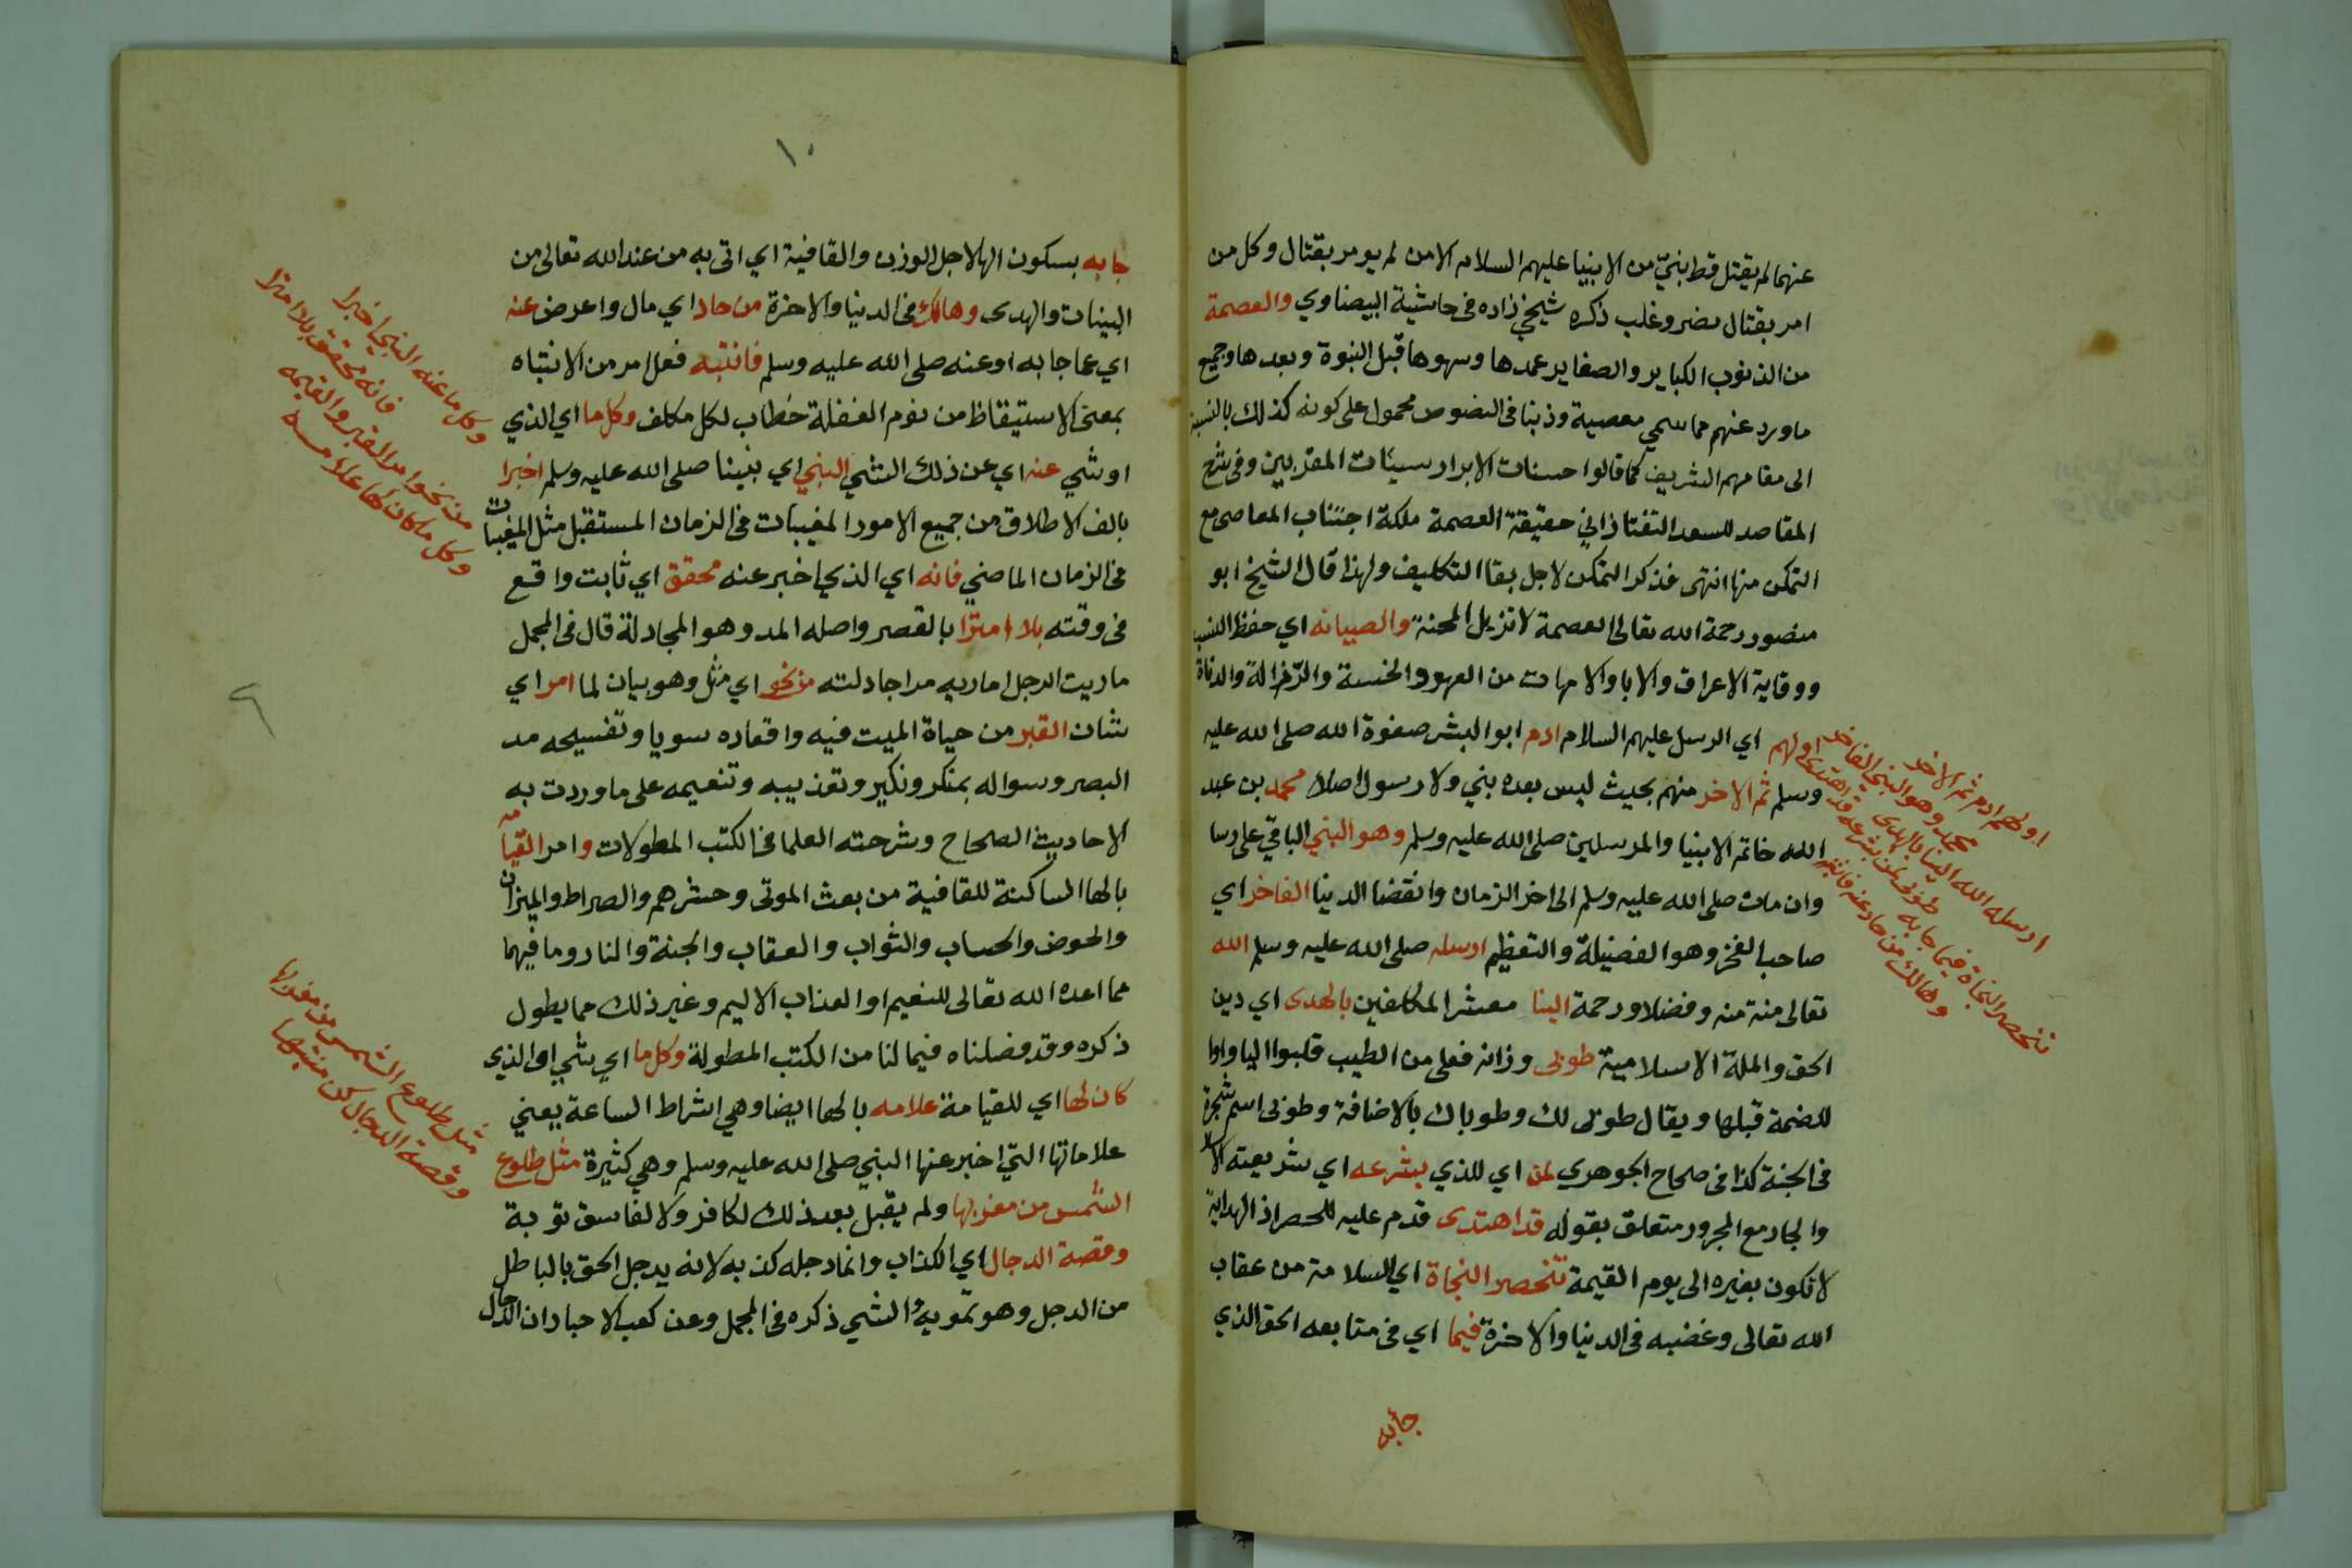 عنهما لم يقتل قط بنيّ من الانبيا عليهم السلام الا من لم يومر بقتال وكل من
امر بقتال نصر وغلب ذكره شيخي زاده في حاشية البيضاوي والعصمة
من الذنوب الكباير والصغاير عمدها وسهوها قبل النبوة وبعدها وجميع
ما ورد عنهم مما سمي معصية وذنبا في النصوص محمول على كونه كذلك بالنسبة
الى مقامهم الشريف كما قالوا حسنات الابرار سيئات المقربين وفي شرح
المقاصد للسعد التفتازاني حقيقة العصمة ملكة اجتناب المعاصي مع
التمكن منها انتهى فذكر التمكن لاجل بقا التكليف ولهذا قال الشيخ ابو
منصور رحمة الله تعالى العصمة لا تزيل المحنة والصيانه اي حفظ النسب
ووقاية الاعراق والابا والامهات من العهر والخسة والرذالة والدناة
اولهم اي الرسل عليهم السلام ادم ابو البشر صفوة الله صلى الله عليه
وسلم ثم الاخر منهم بحيث ليس بعده بني ولا رسول اصلا محمد بن عبد
الله خاتم الانبيا والمرسلين صلى الله عليه وسلم وهو النبي الباقي على رسا
وان مات صلى الله عليه وسلم الى اخر الزمان وانقضا الدنيا الفاخر اي
صاحب الفخر وهو الفضيلة والتعظيم ارسله صلى الله عليه وسلم الله
تعالى منة منه وفضلا ورحمة الينا معشر المكلفين بالهدى اي دين
الحق والملة الاسلامية طوبى وزانه فعلى من الطيب قلبوا اليا واوا
للضمة قبلها ويقال طوبى لك وطوباك بالاضافة وطوبى اسم شجرة
في الجنة كذا في صحاح الجوهري لمن اي للذي بشرعه اي شريعته
والجار مع المجرور متعلق بقوله قد اهتدى قدم عليه للحصر اذ الهداية
لا تكون بغيره الى يوم القيمة تنحصر النجاة اي السلامة من عقاب
الله تعالى وغضبه في الدنيا والاخرة فيما اي في متابعه الحق الذي
جابه
اولهم ادم ثم الاخر
محمد وهو النبي الفاخر
ارسله الله الينا بالهدى
طوبى لمن بشرعه قد اهتدى
تنحصر النجاة فيما جا به
وهالك من حاد عنه فانتبه
١٠
جا به بسكون الها لاجل الوزن والقافية اي اتى به من عند الله تعالى من
البينات والهدى وهالك في الدنيا والاخرة من حاد اي مال واعرض عنه
اي عما جا به او عنه صلى الله عليه وسلم فانتبه فعل امر من الانتباه
بمعنى الاستيقاظ من نوم الغفلة خطاب لكل مكلف وكل ما اي الذي
او شي عنه اي عن ذلك الشي النبي اي نبينا صلى الله عليه وسلم اخبرا
بالف الاطلاق من جميع الامور المغيبات في الزمان المستقبل مثل المغيبات
في الزمان الماضي فانه اي الذي اخبر عنه محقق اي ثابت واقع
في وقته بلا امترا بالقصر واصله المد وهو المجادلة قال في المجمل
ماريت الرجل اماريه مرا جادلته من نحو اي مثل وهو بيان لما امر اي
شان القبر من حياة الميت فيه واقعاده سويا وتفسيحه مد
البصر وسواله بمنكر ونكير وتعذيبه وتنعيمه على ما وردت به
الاحاديث الصحاح وشرحته العلما في الكتب المطولات وامر القيامه
بالها الساكنة للقافية من بعث الموتى وحشرهم والصراط والميزان
والحوض والحساب والثواب والعقاب والجنة والنار وما فيهما
مما اعده الله تعالى للنعيم او العذاب الاليم وغير ذلك مما يطول
ذكره وقد فصلناه فيما لنا من الكتب المطولة وكل ما اي شي او الذي
كان لها اي للقيامة علامه بالها ايضا وهي اشراط الساعة يعني
علاماتها التي اخبر عنها النبي صلى الله عليه وسلم وهي كثيرة مثل طلوع
الشمس من مغربها ولم يقبل بعد ذلك لكافر ولا لفاسق توبة
وقصة الدجال اي الكذاب وانما دجله كذبه لانه يدجل الحق بالباطل
من الدجل وهو تمويه الشي ذكره في المجمل وعن كعب الاحبار ان الدجال
وكل ما عنه النبي اخبرا
فانه محقق بلا امترا
من نحو امر القبر والقيمه
وكل ما كان لها علامه
مثل طلوع الشمس من مغربها
وقصة الدجال كن منتبها